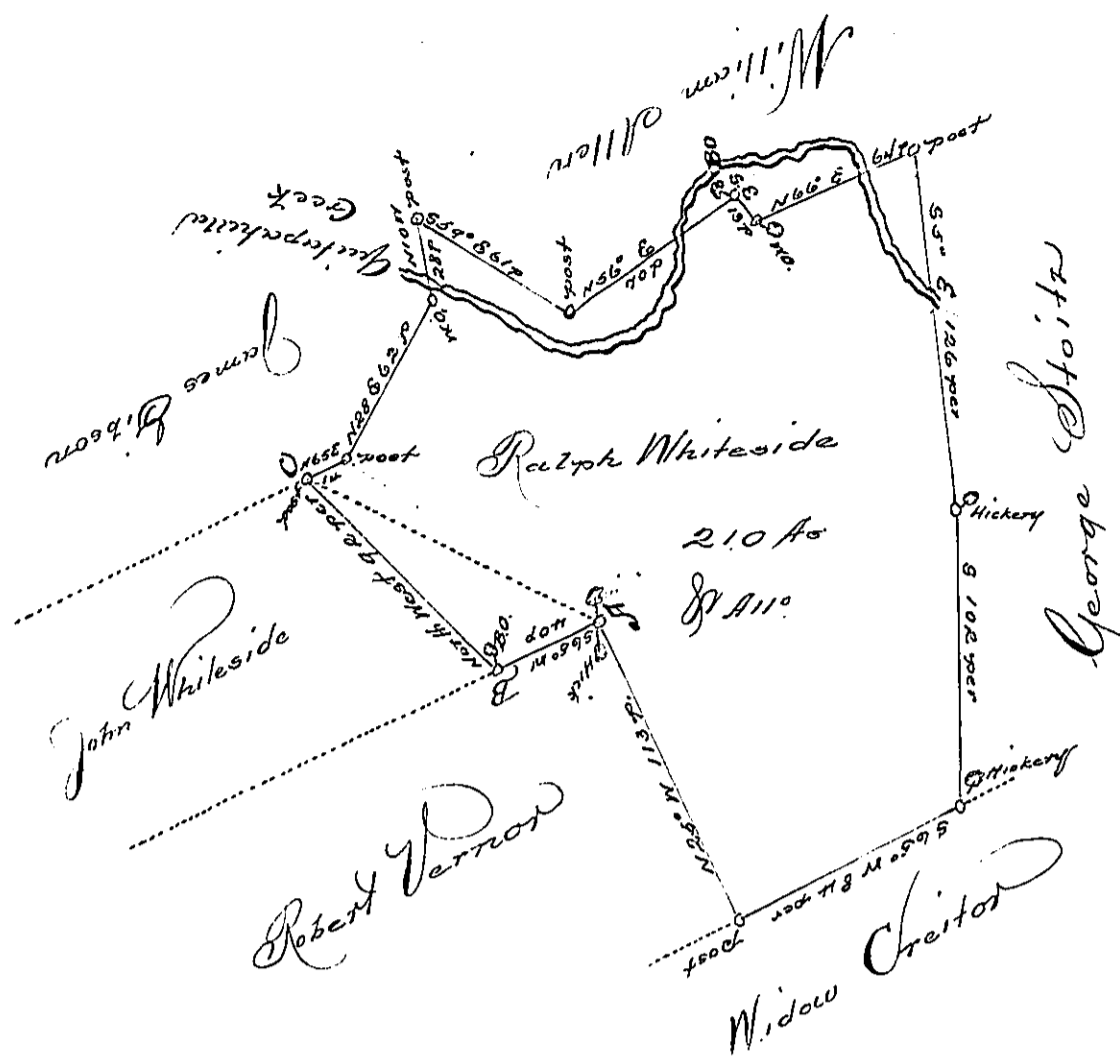 William Allen
Quitapahilla
Creek
James Gibson
Ralph Whiteside
210 As
& All°
George Stoitz
John Whiteside
Robert Vernor
Widow Creitor
post
N10W
28P
W.O.
post
N56° E
70P
B.O.
S E
15P
W.O.
N66° E
64P
post
S5° E 126 per
Hickery
S 102 per
Hickery
S65° W 84 per
post
N25° W 113 P.
Hick.
A
S65° W
40P
B.O.
B
North West 92 per
post
C
post
N28 E 62 P